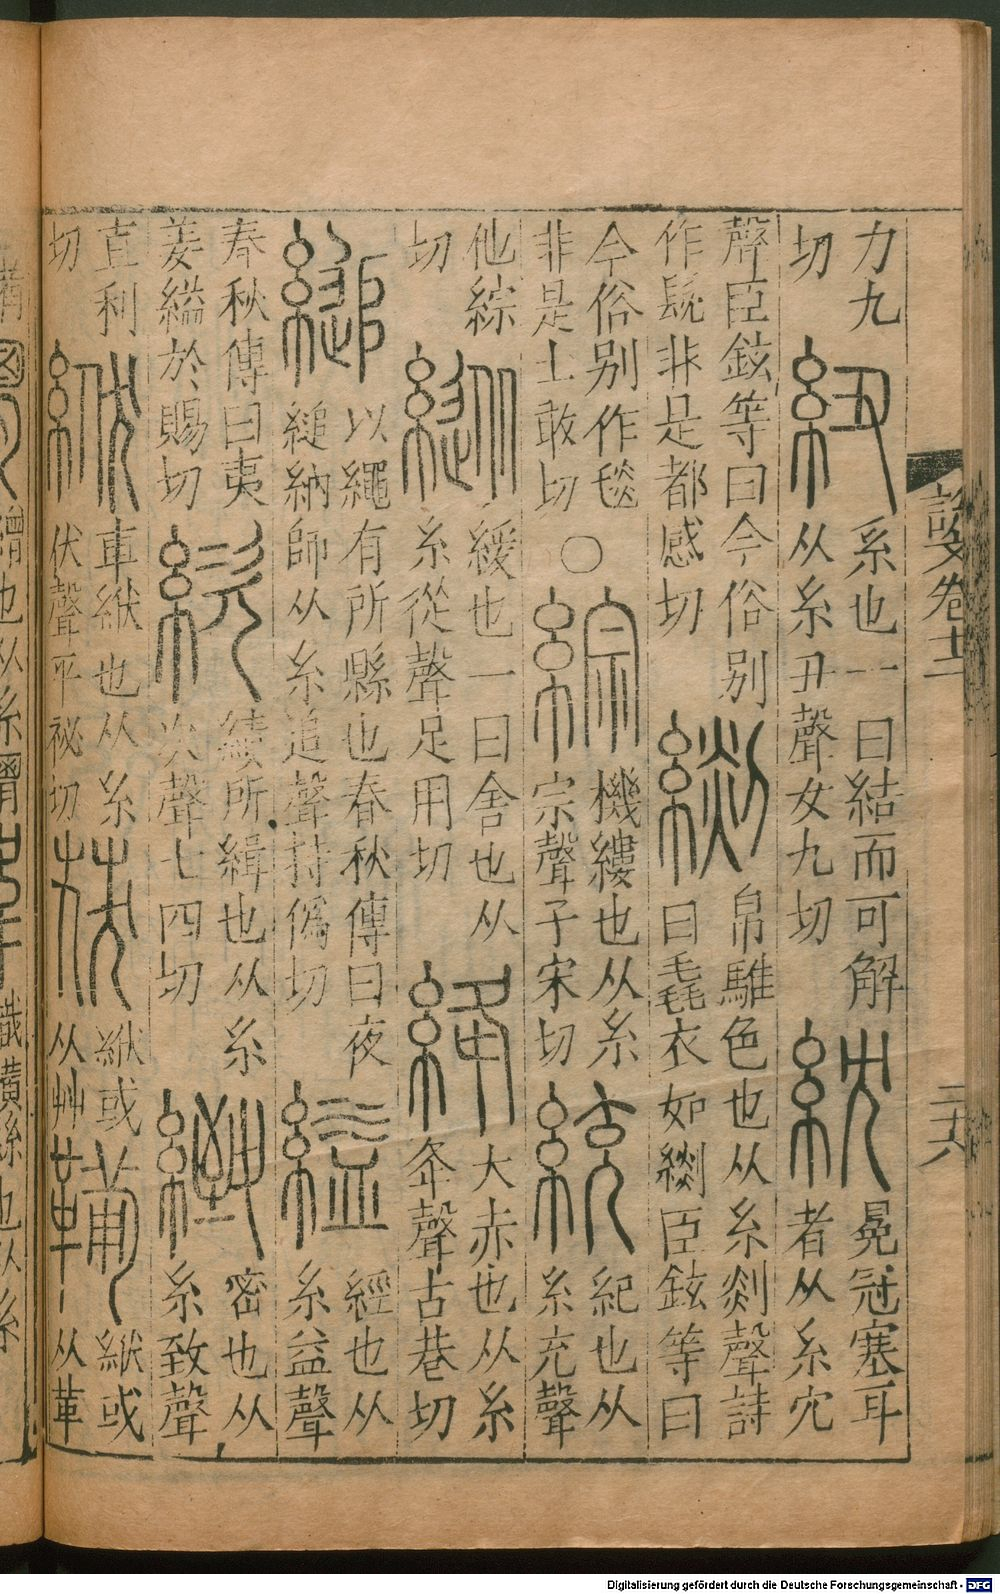 力九
切
紐
系也一曰結而可解
从糸丑聲女九切
紞
冕冠塞耳
者从糸冘
聲臣鉉等曰今俗别
作髧非是都感切
緂
帛騅色也从糸剡聲詩
曰毳衣如緂臣鉉等曰
今俗别作毯
非是土敢切
〇
綜
機縷也从糸
宗聲子宋切
統
紀也从
糸充聲
他綜
切
縱
緩也一曰舍也从
糸從聲足用切
絳
大赤也从糸
夅聲古巷切
縋
以繩有所縣也春秋傳曰夜
縋納師从糸追聲持偽切
縊
經也从
糸益聲
春秋傳曰夷
姜縊於賜切
絘
績所緝也从糸
次聲七四切
緻
密也从
糸致聲
直利
切
絥
車絥也从糸
伏聲平祕切
茯
絥或
从艸
鞴
絥或
从革
說文卷十二
Digitalisierung gefördert durch die Deutsche Forschungsgemeinschaft - DFG